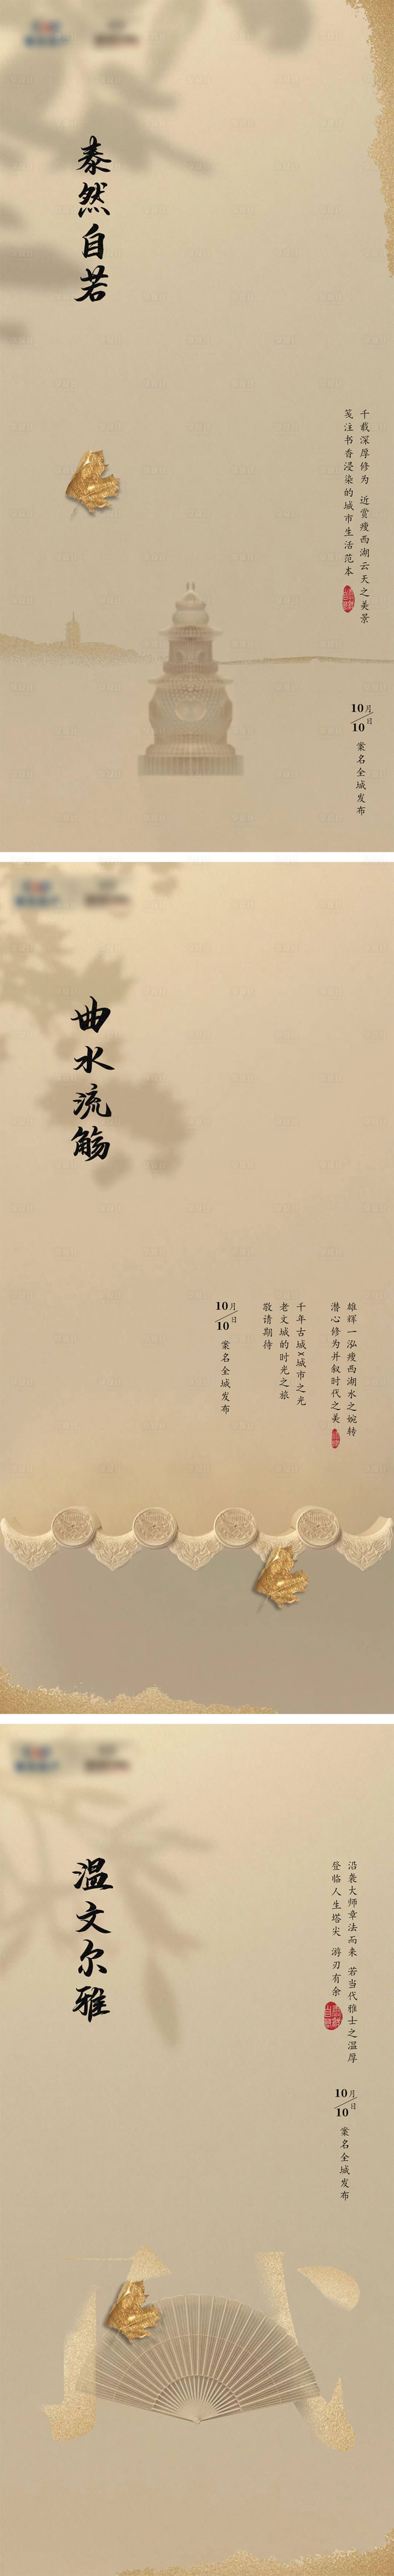 泰然自若
千载深厚修为 近赏瘦西湖云天之美景
笺注书香浸染的城市生活范本
10月
10日
案名全城发布
曲水流觞
雄辉一泓瘦西湖水之婉转
潜心修为并叙时代之美
千年古城x城市之光
老文城的时光之旅
敬请期待
10月
10日
案名全城发布
温文尔雅
沿袭大师章法而来 若当代雅士之温厚
登临人生塔尖 游刃有余
10月
10日
案名全城发布